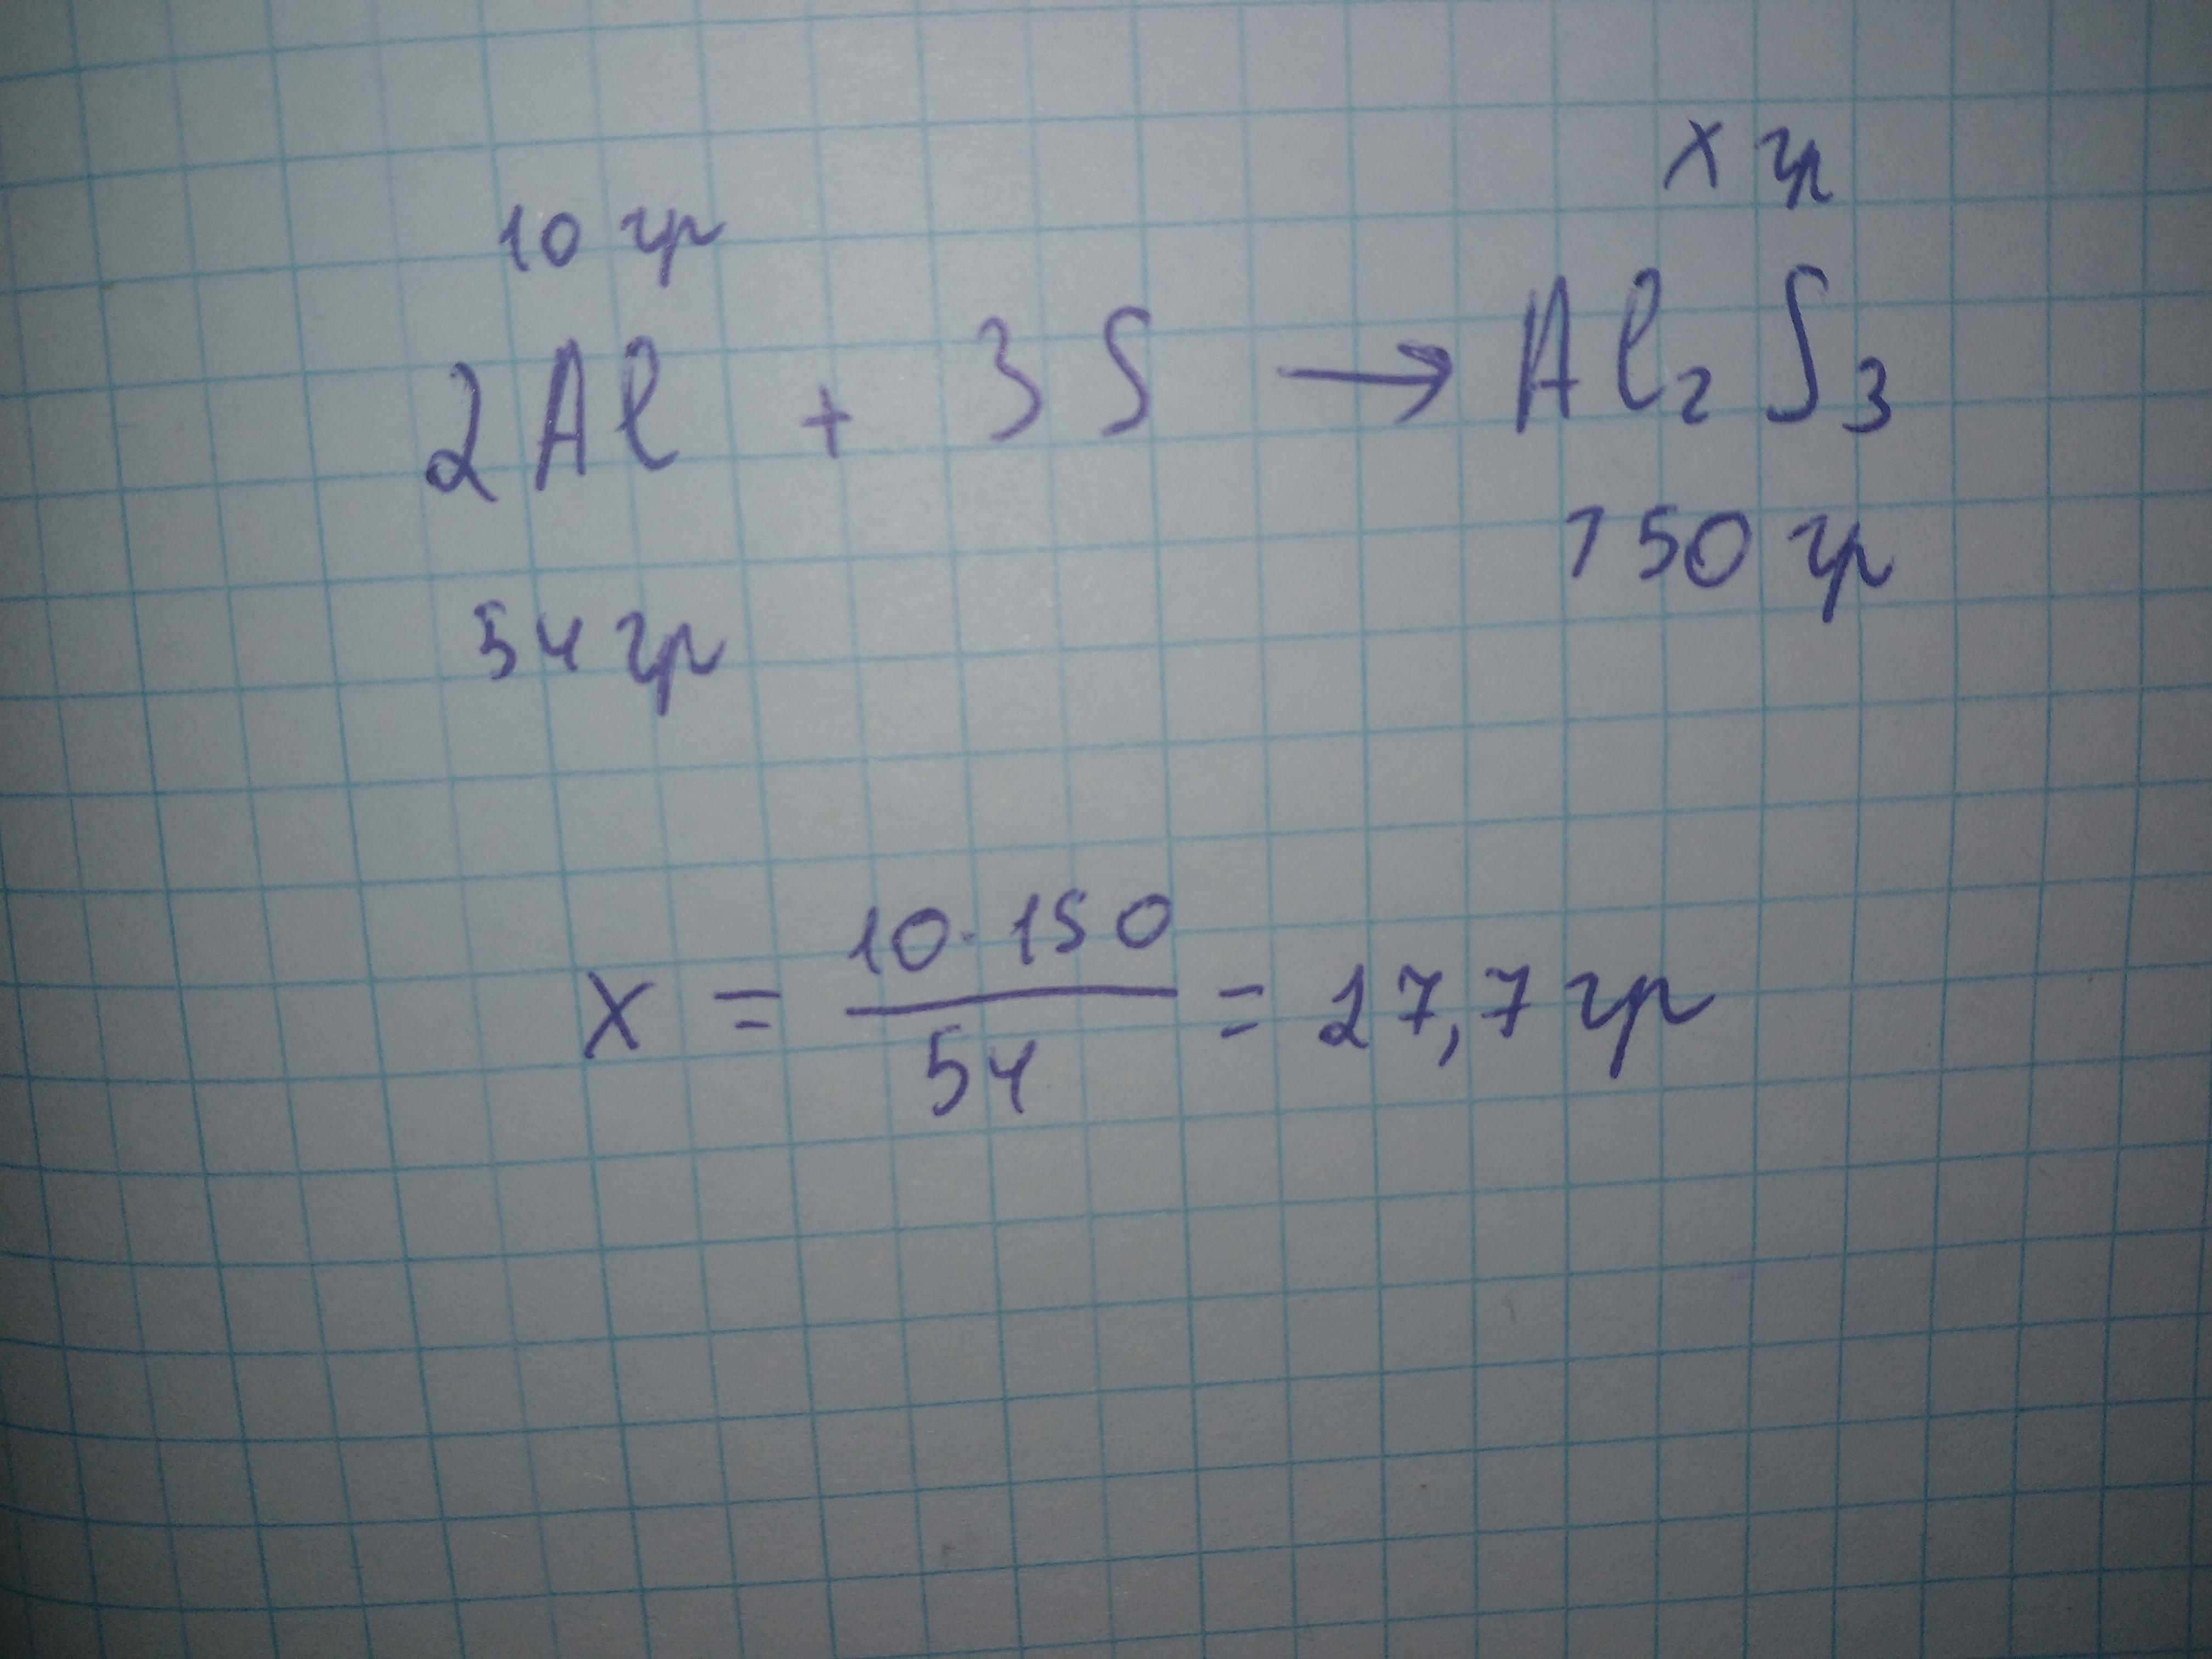 10 гр
x гр
2Al + 3S → Al₂S₃
54 гр
150 гр
x = 10·150 / 54 = 27,7 гр